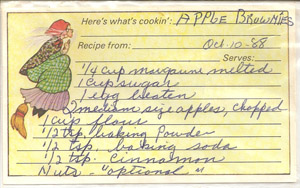 Here's what's cookin': APPLE BROWNIES
Recipe from: Oct-10-88
Serves:
1/4 cup margarine melted
1 cup sugar
1 egg beaten
2 medium size apples, chopped
1 cup flour
1/2 tsp. baking Powder
1/2 tsp. baking soda
1/2 tsp. Cinnamon
Nuts - "optional"